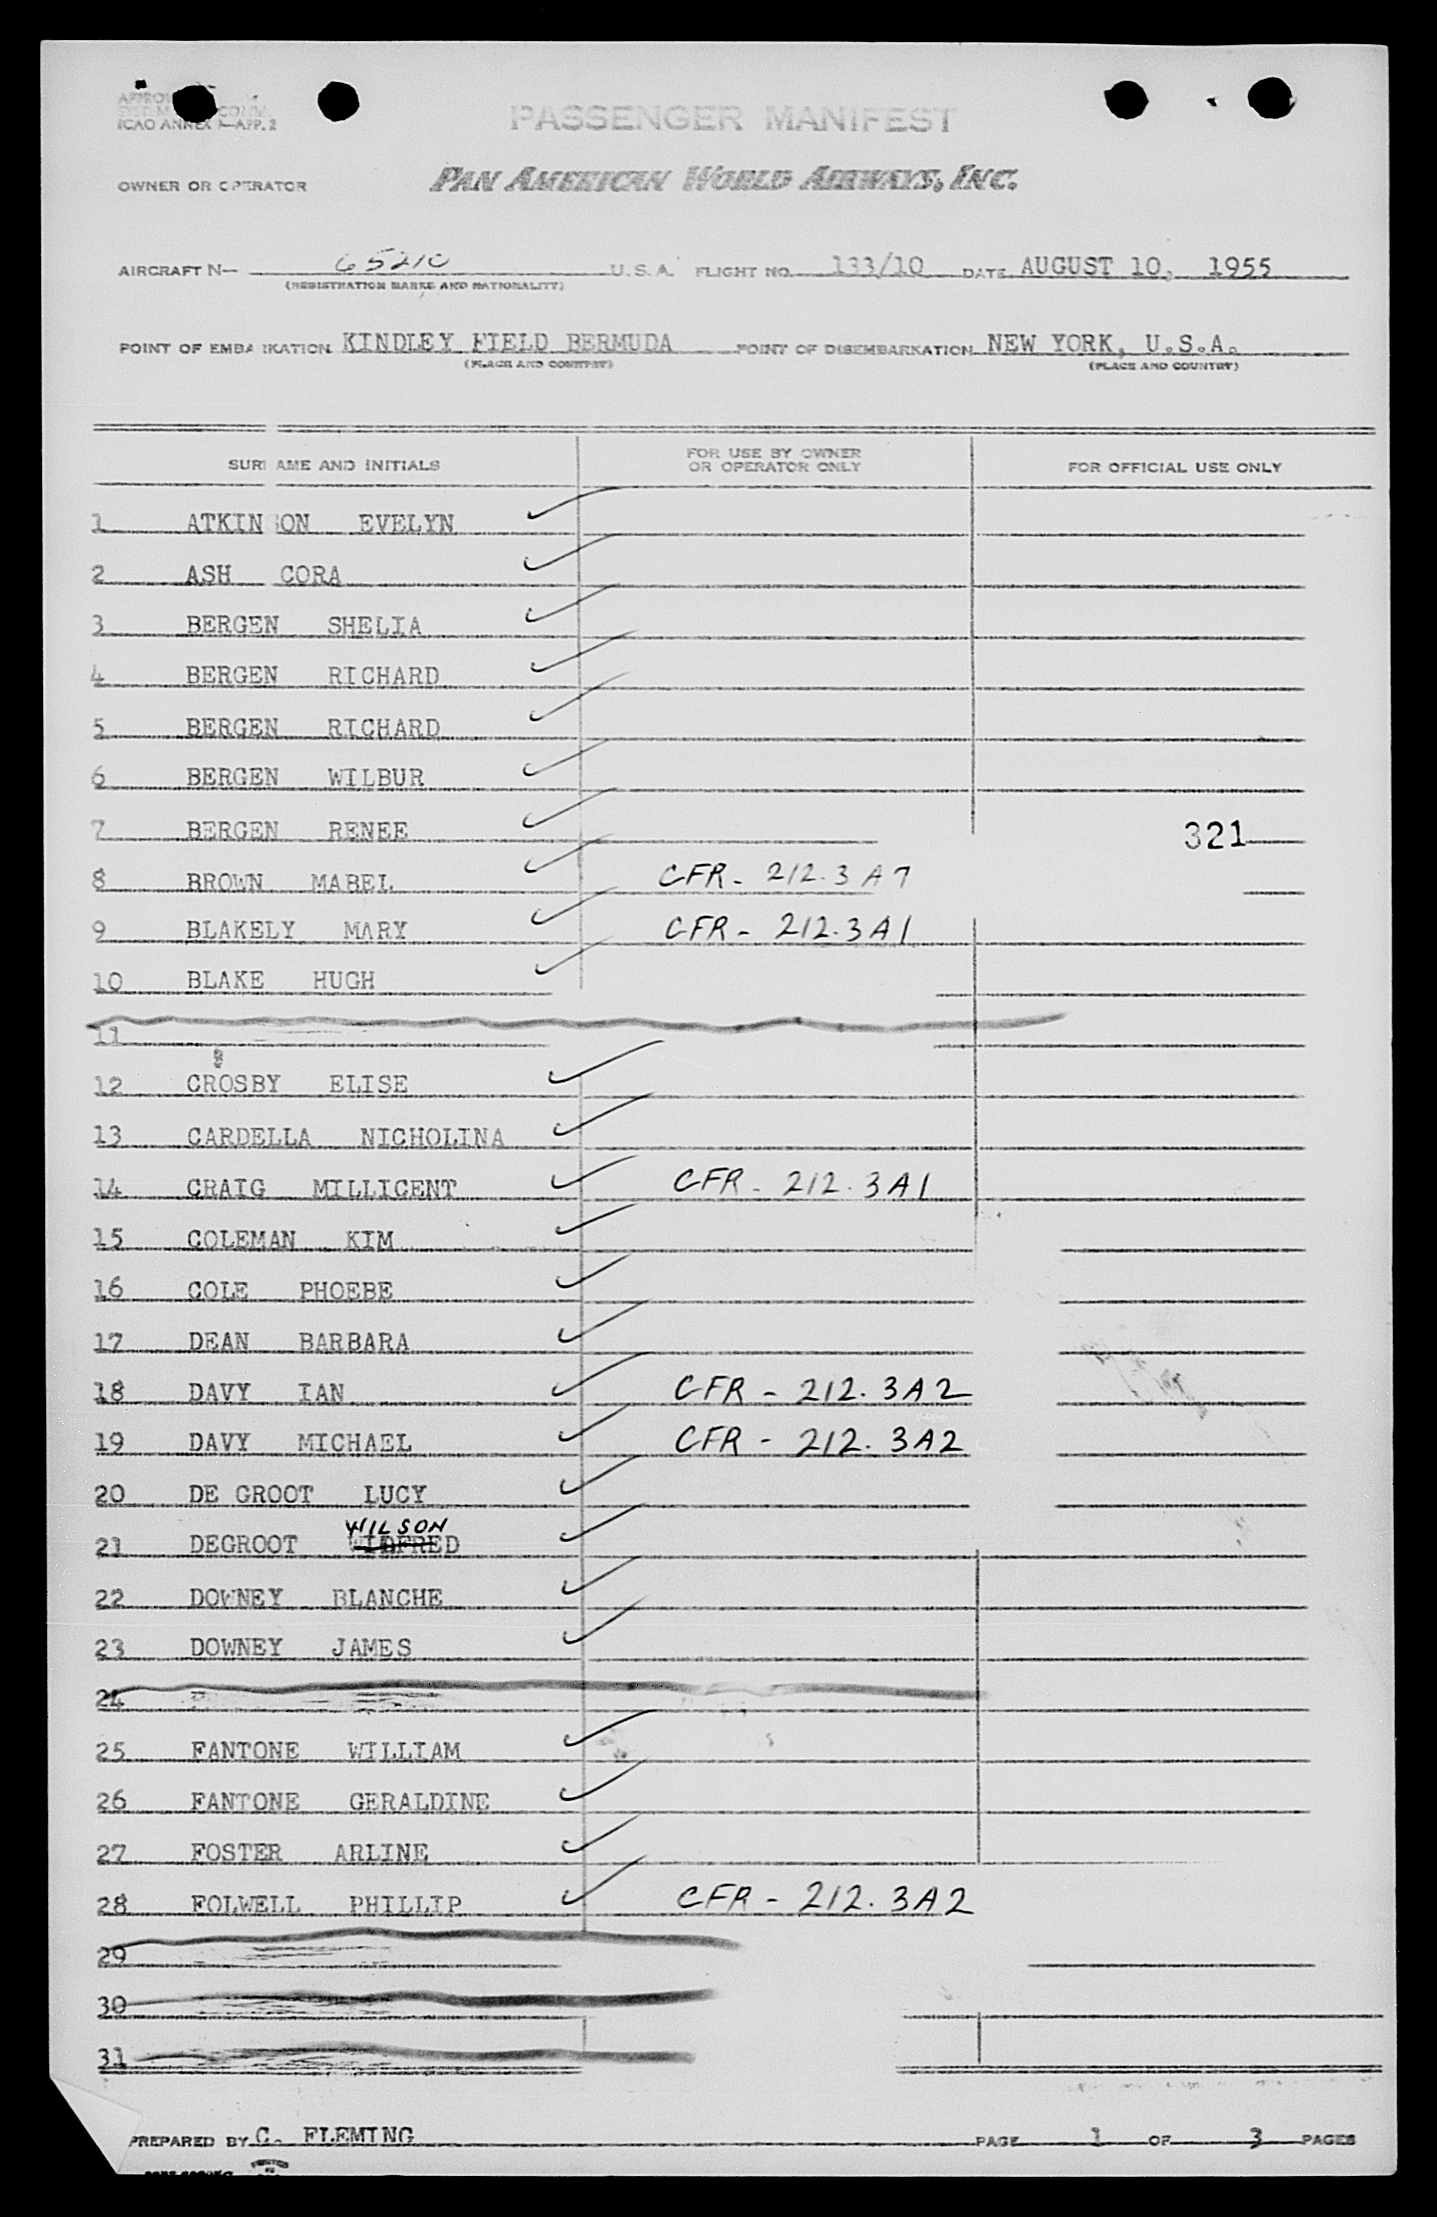 ICAO ANNEX 9—APP. 2
PASSENGER MANIFEST
OWNER OR OPERATOR PAN AMERICAN WORLD AIRWAYS, INC.
AIRCRAFT N— 65210 U.S.A. FLIGHT NO. 133/10 DATE AUGUST 10, 1955
(REGISTRATION MARKS AND NATIONALITY)
POINT OF EMBARKATION KINDLEY FIELD BERMUDA POINT OF DISEMBARKATION NEW YORK, U.S.A.
(PLACE AND COUNTRY) (PLACE AND COUNTRY)
SURNAME AND INITIALS FOR USE BY OWNER OR OPERATOR ONLY FOR OFFICIAL USE ONLY
1 ATKINSON EVELYN
2 ASH CORA
3 BERGEN SHELIA
4 BERGEN RICHARD
5 BERGEN RICHARD
6 BERGEN WILBUR
7 BERGEN RENEE 321
8 BROWN MABEL CFR - 212.3 A7
9 BLAKELY MARY CFR - 212.3A1
10 BLAKE HUGH
11
12 CROSBY ELISE
13 CARDELLA NICHOLINA
14 CRAIG MILLICENT CFR - 212.3A1
15 COLEMAN KIM
16 COLE PHOEBE
17 DEAN BARBARA
18 DAVY IAN CFR - 212.3A2
19 DAVY MICHAEL CFR - 212.3A2
20 DE GROOT LUCY
WILSON
21 DEGROOT WILFRED
22 DOWNEY BLANCHE
23 DOWNEY JAMES
24
25 FANTONE WILLIAM
26 FANTONE GERALDINE
27 FOSTER ARLINE
28 FOLWELL PHILLIP CFR - 212.3A2
29
30
31
PREPARED BY C. FLEMING PAGE 1 OF 3 PAGES